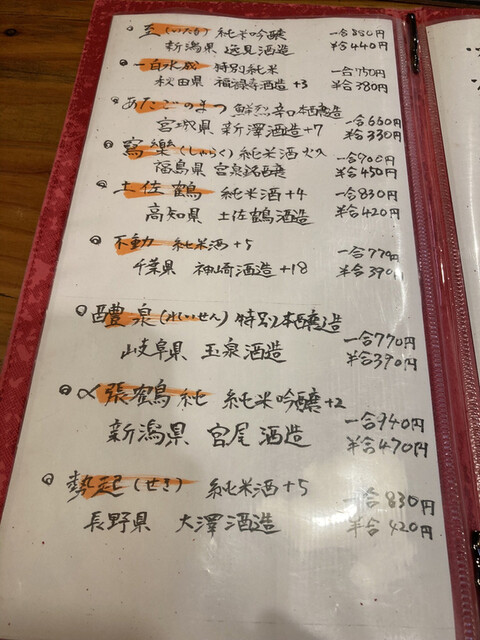 至(いたる) 純米吟醸 一合880円
新潟県 逸見酒造 半合440円
一白水成 特別純米 一合750円
秋田県 福禄寿酒造+3 半合380円
あたごのまつ 鮮烈辛口本醸造 一合660円
宮城県 新澤酒造+7 半合330円
寫樂(しゃらく)純米酒 火入 一合900円
福島県 宮泉銘醸 半合450円
土佐鶴 純米酒+4 一合830円
高知県 土佐鶴酒造 半合420円
不動 純米酒+5 一合770円
千葉県 神崎酒造+18 半合390円
醴泉(れいせん)特別本醸造
岐阜県 玉泉酒造 一合770円
半合390円
〆張鶴 純 純米吟醸+2
新潟県 宮尾酒造 一合940円
半合470円
勢起(せき) 純米酒+5 一合830円
長野県 大澤酒造 半合420円